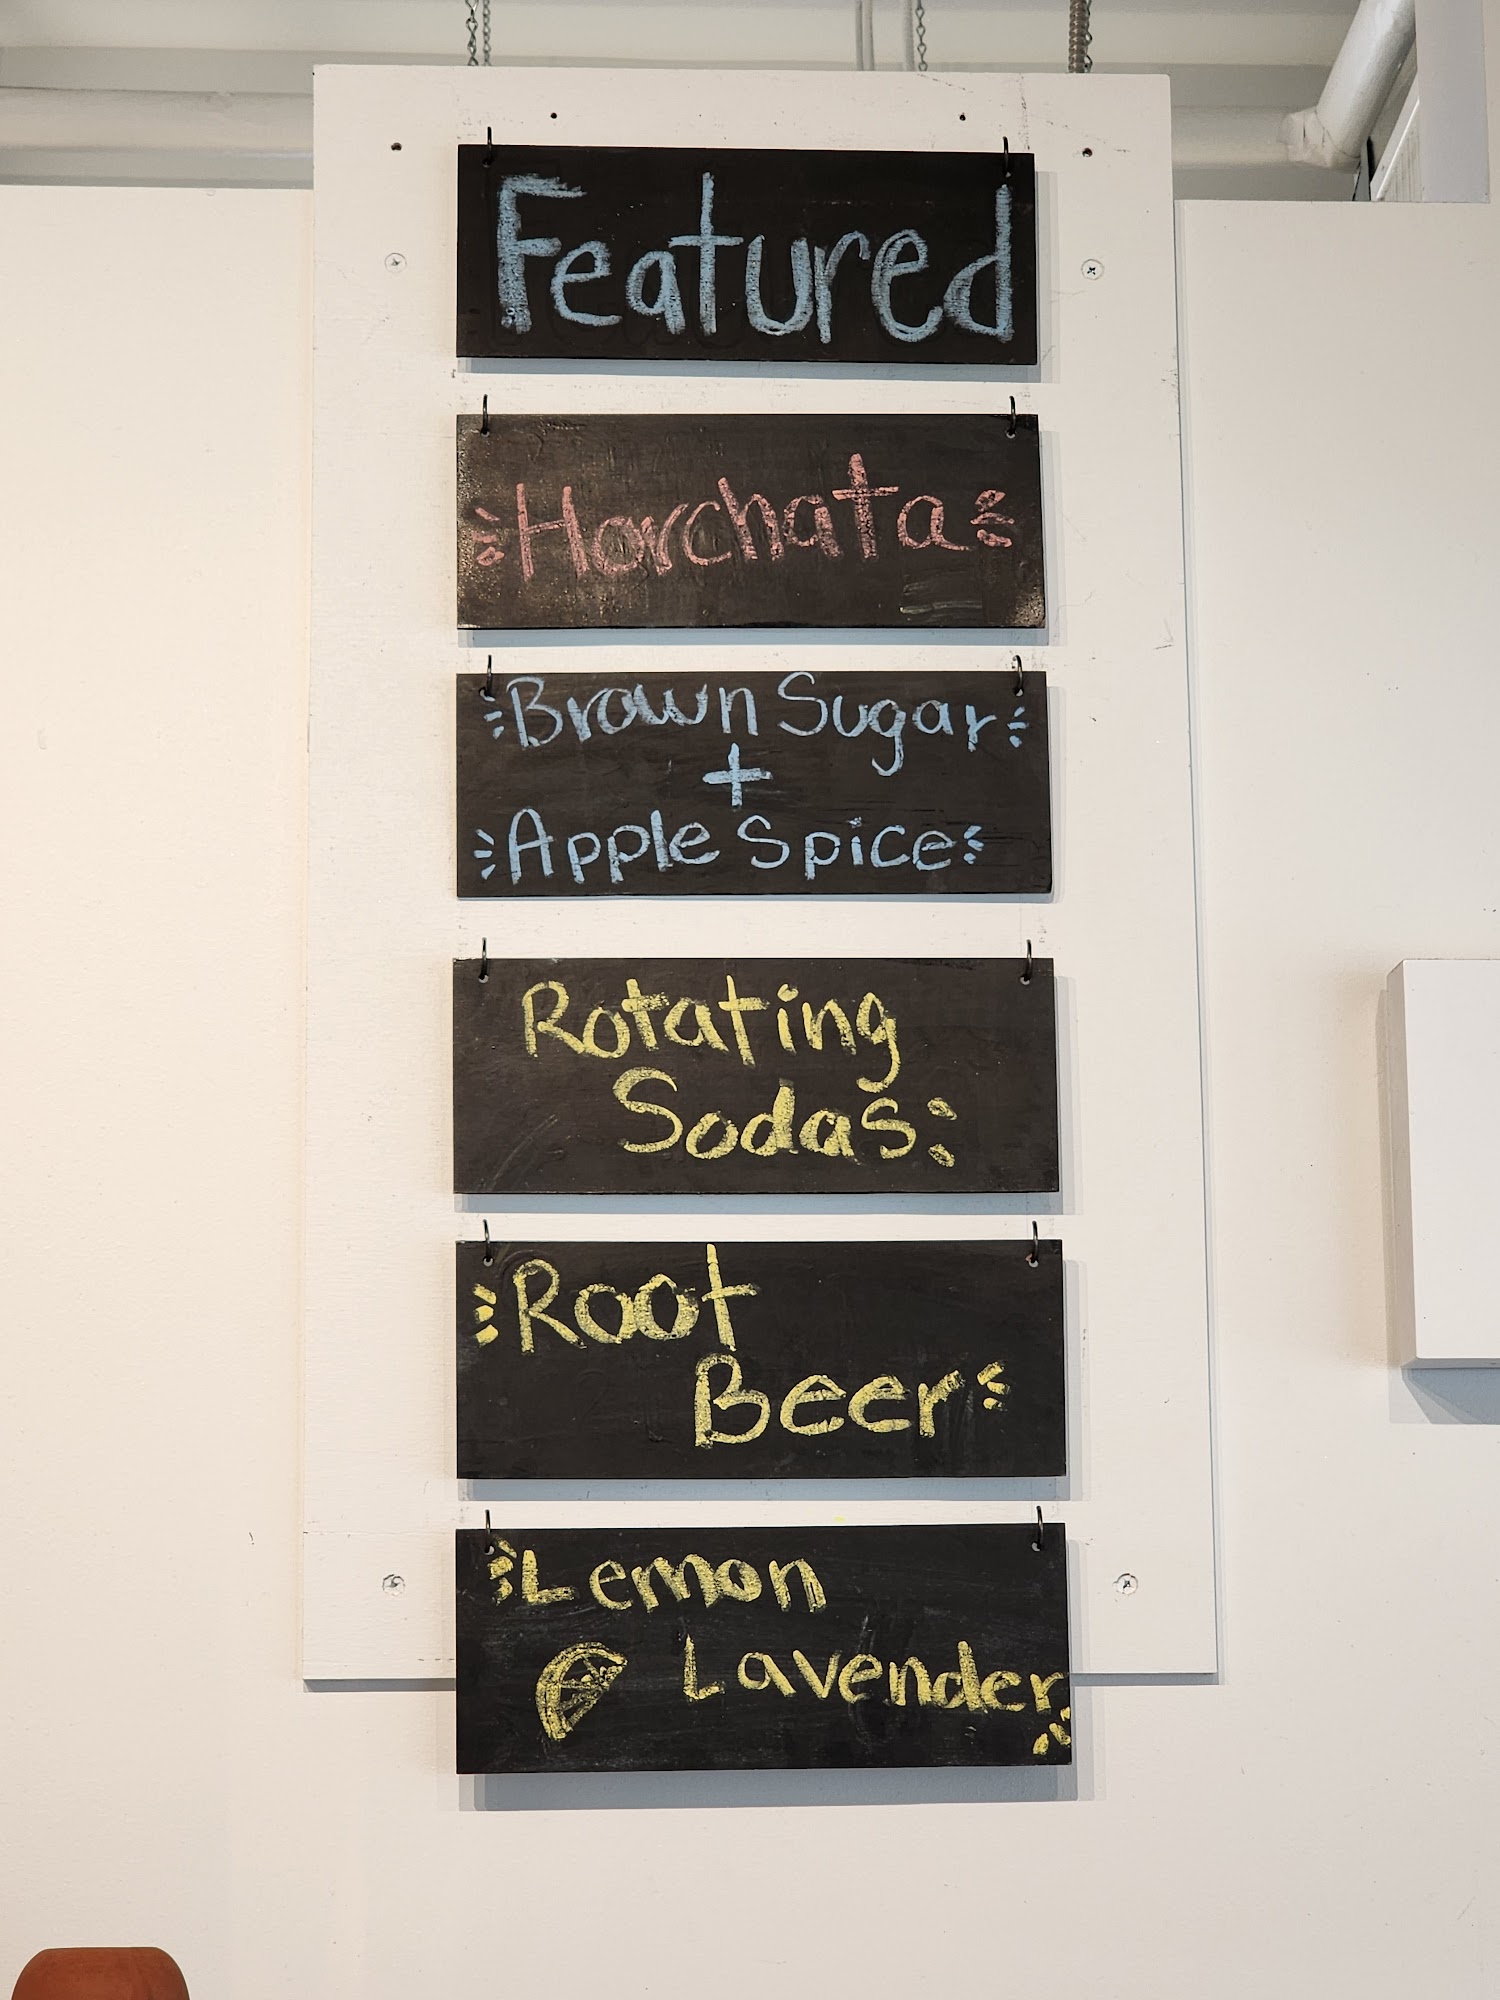 Featured
Horchata
Brown Sugar
+
Apple Spice
Rotating
Sodas:
Root
Beer
Lemon
Lavender